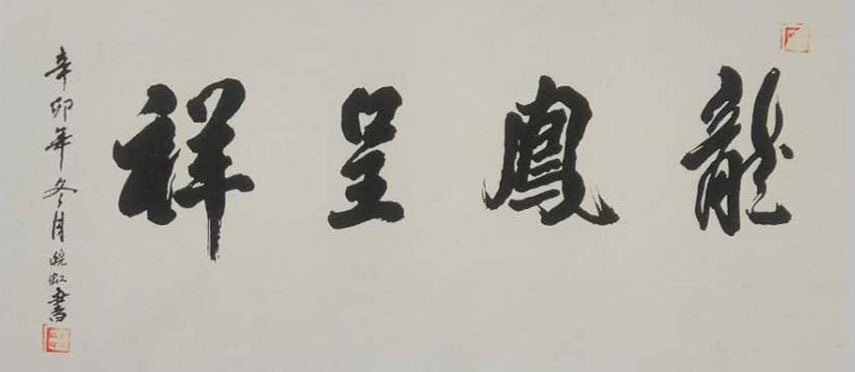 龍鳳呈祥
辛卯年冬月晓虹書